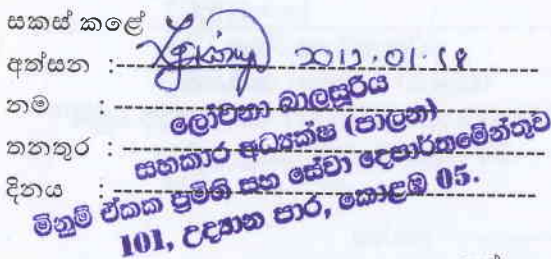 සකස් කළේ
අත්සන :- 2013.01.18
නම :-
ලෝචනා බාලසූරිය
තනතුර :-
සහකාර අධ්‍යක්ෂ (පාලන)
දිනය :-
මිනුම් ඒකක ප්‍රමිති සහ සේවා දෙපාර්තමේන්තුව
101, උද්‍යාන පාර, කොළඹ 05.